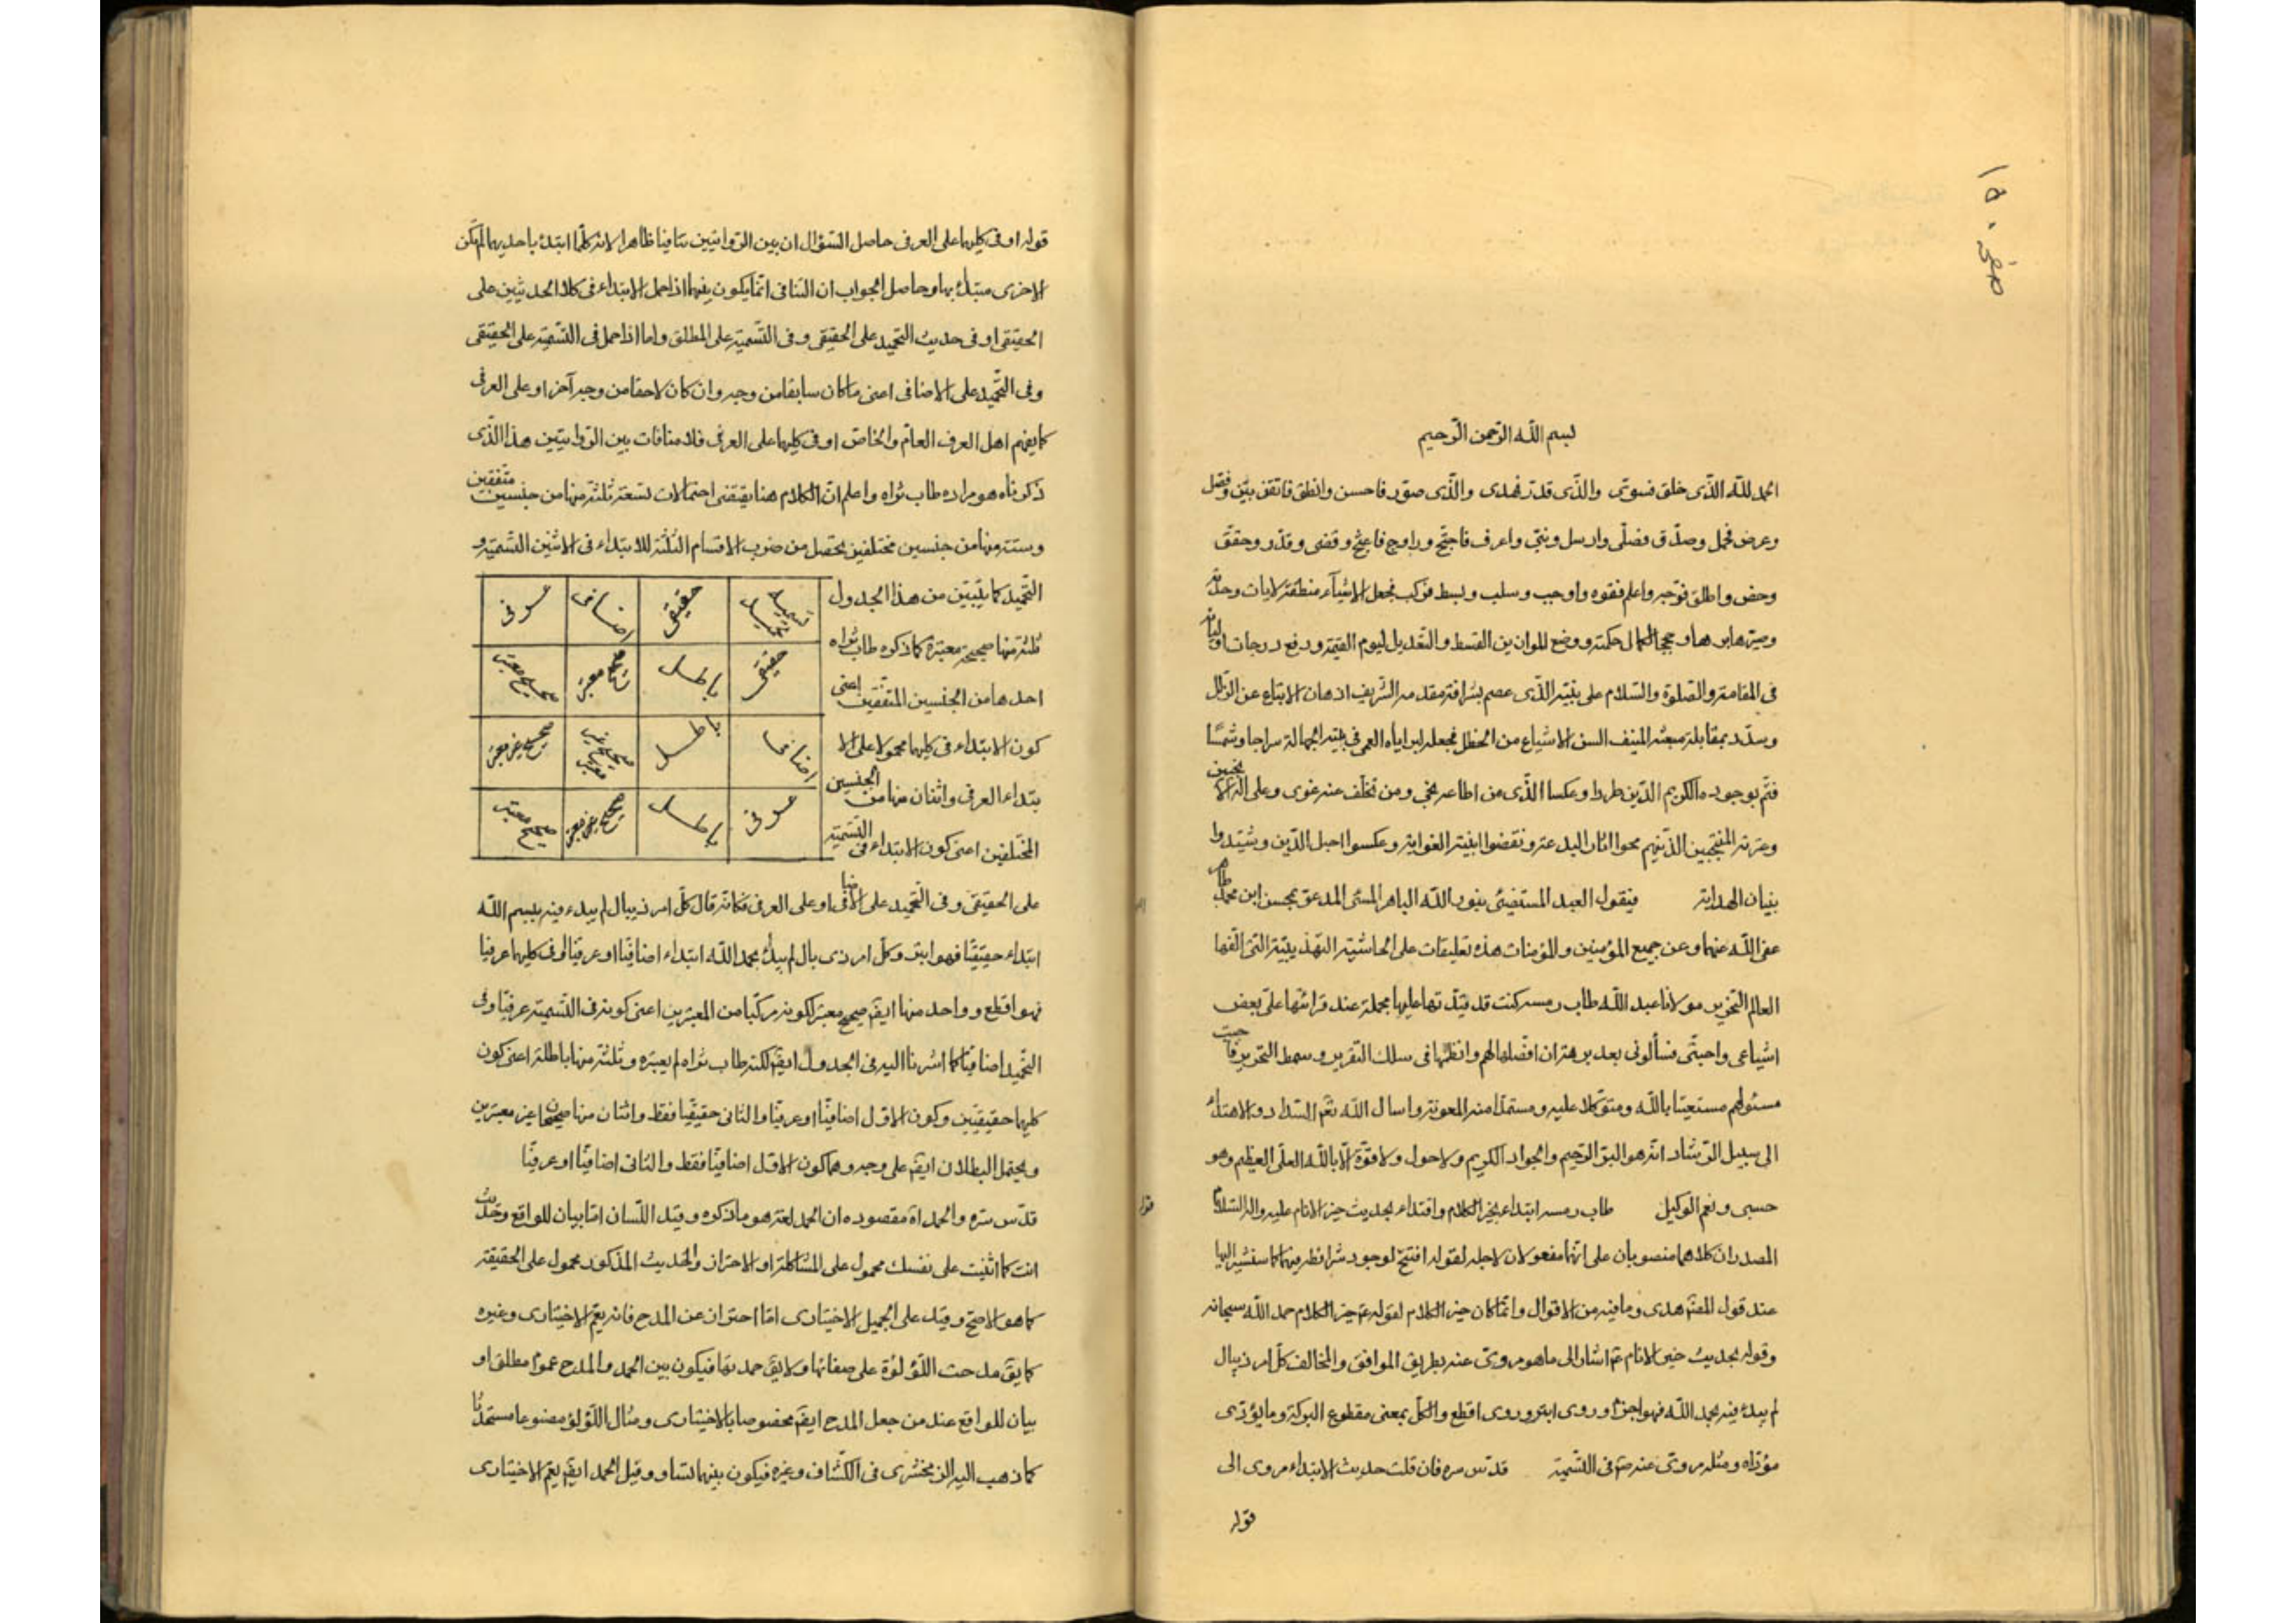 ١٥٠ صفحه
بسم الله الرّحمن الرّحيم
الحمد للّه الذّى خلق فسوّى والذّى قدّر فهدى والذّى صوّر فاحسن وانطق فاتقن بيّن وفصّل
وعرض فحمل وصدّق فصلّى وارسل ونبّى واعرف فاحتجّ وقضى وقدّر وحقّق
وخصّ واطلق فوجّه واعلم ففوّه واوجب وسلب وبسط فركّب فجعل الاشيآء لايات وحدانيّته
وصيّرها براهين وحججا لكمال حكمته ووضع الموازين القسط والتّعديل ليوم القيمة ورفع درجات اوليائه
فى المقامة والصّلوة والسّلام على نبيّه الذّى عصم بشرافة مقدمه الشّريف اذهان الاتباع عن الزّلل
وسدّد بمقابلة مبعثه المنيف السن الاشياع من الخطل فجعله ايّاه سراجا وشمسًا
فتمّ بوجوده الكريم الدّين طردا وعكسا الذّى من اطاعه نجى ومن تخلّف عنه غوى وعلى آله الانجبين
وعترته المنتجبين الذّين هم محوا اثار البدعة ونقضوا ابنية الغواية وعكسوا احبل الدّين وشيّدوا
بنيان الهداية فيقول العبد المستضئ بنور اللّه الباهر المسئ المدعوّ بمحسن ابن محمّد طاهر
عفى اللّه عنهما وعن جميع المؤمنين والمؤمنات هذه تعليقات على الحاشية التهذيبيّة التى الّفها
العالم النحرير مولانا عبد اللّه طاب رمسه كنت قد قيّدتها عليها مجملة عند قرائتها علىّ بعض
اشياعى واحبّتى فسألونى بعد برهة ان افصّلها لهم وانظمها فى سلك التقرير وسمط التحرير فاجبت
مسئولهم مستعينا باللّه ومتوكّلا عليه ومستمدّا منه المعونة واسال اللّه تعم السّداد والاهتداء
الى سبيل الرّشاد انّه هو البرّ الرّحيم والجواد الكريم ولا حول ولا قوّة الّا باللّه العلّى العظيم وهو
حسبى ونعم الوكيل طاب رمسه ابتداء بخير الكلام واقتداء بحديث خير الانام عليه واله السّلام
المصدران كلاهما منصوبان على انّهما مفعولان لاجله لقوله افتتح لوجود شرائطه فيهما كما سنشير اليها
عند قول المصّ هدى وما فيه من الاقوال وانّما كان خير الكلام لقوله عم خير الكلام حمد اللّه سبحانه
وقوله بحديث خير الانام عم اشار الى ما هو مروىّ عنه بطريق الموافق والمخالف كلّ امر ذيبال
لم يبدء فيه بحمد اللّه فهو اجزم وروى ابتر وروى اقطع والكلّ بمعنى مقطوع البركة وما يؤدّى
مؤدّاه ومثله مروىّ عنه صم فى التّسمية قدّس سره فان قلت حديث الابتداء مروى الى
قوله
قوله
قوله او فى كليهما على العرفى حاصل السّؤال ان بين الرّوايتين تنافيا ظاهرا لانه كلّما ابتدئ باحديهما لم يكن
الاخرى مبتدأ بها وحاصل الجواب ان التنافى انّما يكون بينهما اذا حمل الابتداء فى كلا الحديثين على
الحقيقى او فى حديث التحميد على الحقيقى وفى التّسمية على المطلق واما اذا حمل فى التّسمية على الحقيقى
وفى التّحميد على الاضافى اعنى ما كان سابقا من وجه وان كان لاحقا من وجه آخر او على العرفى
كما يفهم اهل العرف العامّ والخاصّ او فى كليهما على العرفى فلا منافات بين الرّوايتين هذا الذّى
ذكرناه هو مراده طاب ثراه واعلم انّ الكلام هنا يقتضى احتمالات تسعة ثلثة منها من جنسين متّفقين
وستّة منها من جنسين مختلفين يحصل من ضرب الاقسام الثّلثة للابتداء فى الاثنين التّسمية و
التّحميد كما يتبيّن من هذا الجدول
ثلثة منها صحيحة معتبرة كما ذكره طاب ثراه
احدها من الجنسين المتّفقين اعنى
كون الابتداء فى كليهما محمولا على الا
بتداء العرفى واثنان منها من الجنسين
المختلفين اعنى كون الابتداء فى التّسمية
تسمية تحميد حقيقى اضافى عرفى
حقيقى باطل صحيح معتبر صحيح معتبر
اضافى باطل صحيح غير معتبر صحيح غير معتبر
عرفى باطل صحيح غير معتبر صحيح معتبر
على الحقيقى وفى التّحميد على الاضافى او على العرفى فكانّه قال كلّ امر ذيبال لم يبدء فيه ببسم اللّه
ابتداء حقيقيّا فهو ابتر وكلّ امر ذى بال لم يبدأ بحمد اللّه ابتداء اضافيّا او عرفيّا او فى كليهما عرفيا
فهو اقطع وواحد منها ايضم صحيح معتبر لكونه مركّبا من المعتبرين اعنى كونه فى التّسمية عرفيّا وفى
التّحميد اضافيّا كما اشرنا اليه فى الجدول ايضم لكنّه طاب ثراه لم يعتبره وثلثة منها باطلة اعنى كون
كليهما حقيقيّين وكون الاوّل اضافيّا او عرفيّا والثانى حقيقيّا فقط واثنان منها صحيحان غير معتبرين
ويحتمل البطلان ايضم على وجه وهما كون الاوّل اضافيّا فقط والثانى اضافيّا او عرفيّا
قدّس سرّه والحمد اه مقصوده ان الحمد لغة هو ما ذكره وقيد اللّسان امّا بيان للواقع وحديث
انت كما اثنيت على نفسك محمول على المشاكلة او الاحتراز والحديث المذكور محمول على الحقيقة
كما هو الاصحّ وقيد على الجميل الاختيارى امّا احتراز عن المدح فانه يعمّ الاختيارى وغيره
كما يقم مدحت اللّؤلؤة على صفائها ولا يقم حمدتها فيكون بين الحمد والمدح عموم مطلق او
بيان للواقع عند من جعل المدح ايضم مخصوصا بالاختيارى ومثال اللّؤلؤ مصنوعا
كما ذهب اليه الزمخشرى فى الكشّاف وغيره فيكون بينهما تساو وقيل الحمد ايضم يعمّ الاختيارى